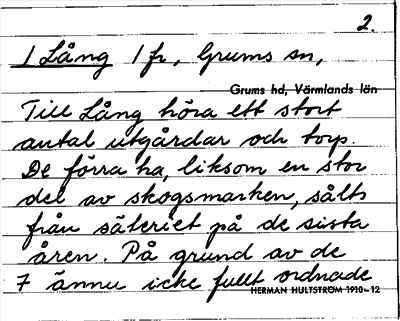 2.
1 Lång 1 fr, Grums sn,
Grums hd, Värmlands län
Till Lång höra ett stort
antal utgårdar och torp.
De förra ha, liksom en stor
del av skogsmarken, sålts
från säteriet på de sista
åren. På grund av de
7 ännu icke fullt ordnade
HERMAN HULTSTRÖM 1910-12